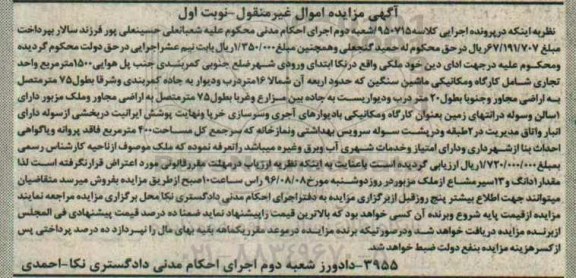 آگهی مزایده اموال غیرمنقول-نوبت اول
نظر به اینکه در پرونده اجرایی کلاسه ۹۵۰۷۱۵ شعبه دوم اجرای احکام مدنی محکوم علیه شعبانعلی حسینعلی پور فرزند سالار بپرداخت
مبلغ ۶۷/۱۹۱/۷۰۷ ریال در حق محکوم له حمید گنجعلی و همچنین مبلغ ۱/۳۵۰/۰۰۰ ریال بابت نیم عشر اجرایی در حق دولت محکوم گردیده
و محکوم علیه در جهت ادای دین خود ملکی واقع در نکا ابتدای ورودی شهر ضلع جنوبی کمربندی جنب پل هوایی ۱۵۰۰ متر مربع واحد
تجاری شامل کارگاه ومکانیکی ماشین سنگین که حدود اربعه آن شمالا ۱۶ متر درب ودیوار به جاده کمربندی وشرقا بطول ۷۵ متر متصل
به اراضی مجاور وجنوبا بطول ۲۰ متر درب ودیواریست به جاده بین مزارع وغربا بطول ۷۵ متر متصل به اراضی مجاور وملک مزبور دارای
۱ سالن وسوله در انتهای زمین بعنوان کارگاه ومکانیکی با دیوارهای آجری وسرسازی خرپا ونهایت پوشش ایرانیت در بخشی از سوله دارای
انبار واتاق مدیریت در ۲ طبقه ودر پشت سوله سرویس بهداشتی ونمازخانه که سر جمع کل مساحت ۴۰۰ متر مربع فاقد پروانه وپاگواهی
احداث بنا از شهرداری و دارای امتیاز وخدمات شهری آب وبرق وغیره میباشد را تعرفه نموده که ملک موصوف از ناحیه کارشناس رسمی
بمبلغ ۱/۷۲۰/۰۰۰/۰۰۰ ریال ارزیابی گردیده است با عنایت به اینکه نظریه ارزیاب در مهلت مقرر قانونی مورد اعتراض قرار نگرفته است لذا
مقدار ۱ دانگ و ۱۳ سیر مشاع از ملک مزبور در روز دوشنبه مورخ ۹۶/۰۸/۰۸ راس ساعت ۱۰ صبح از طریق مزایده بفروش میرسد متقاضیان
میتوانند جهت اطلاع بیشتر پنج روز قبل از برگزاری مزایده به دفتر اجرای احکام مدنی دادگستری نکا محل برگزاری مزایده مراجعه نمایند
مزایده از قیمت پایه شروع وبرنده آن کسی خواهد بود که بالاترین قیمت را پیشنهاد نماید ضمنا ده درصد قیمت پیشنهادی فی المجلس
از برنده مزایده دریافت خواهد شد و در صورتیکه برنده مزایده در موعد مقرر یکماهه بقیه بهای مال را نپردازد ده درصد پرداختی پس
از کسر هزینه مزایده بنفع دولت ضبط خواهد شد.
۳۹۵۵-دادورز شعبه دوم اجرای احکام مدنی دادگستری نکا-احمدی